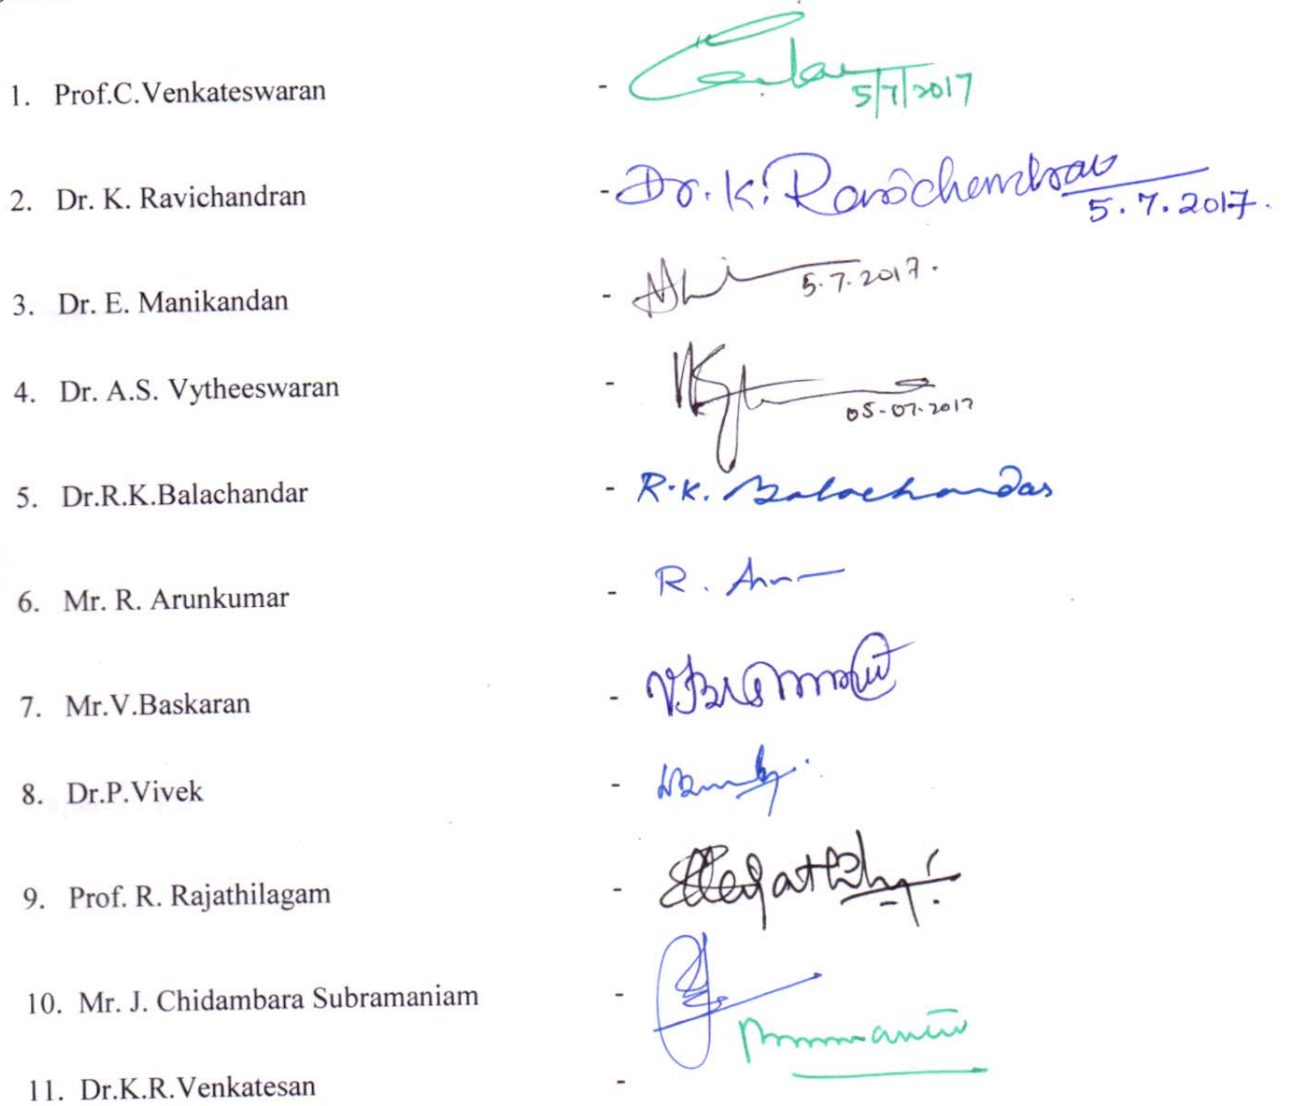 1. Prof.C.Venkateswaran - 5/7/2017
2. Dr. K. Ravichandran - Dr. K. Ravichandran 5.7.2017.
3. Dr. E. Manikandan - 5.7.2017.
4. Dr. A.S. Vytheeswaran - 05-07-2017
5. Dr.R.K.Balachandar - R.K. Balachandar
6. Mr. R. Arunkumar - R.
7. Mr.V.Baskaran -
8. Dr.P.Vivek -
9. Prof. R. Rajathilagam -
10. Mr. J. Chidambara Subramaniam -
11. Dr.K.R.Venkatesan -